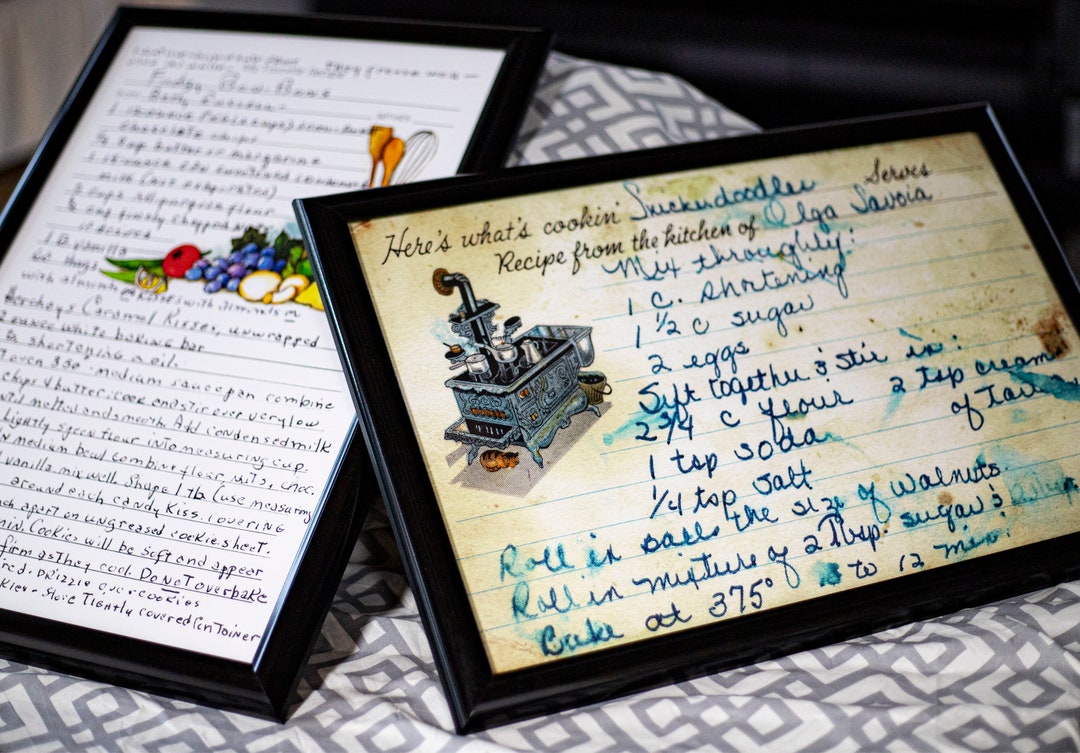 They freeze well —
Fudgy Bon Bons
chocolate chips
¼ cup butter or margarine
milk (not evaporated)
2 cups all purpose flour
½ cup finely chopped
if desired
1 ts vanilla
60
with almonds
Hersheys Caramel Kisses, unwrapped
2 ounce White baking bar
ts shortening or oil.
oven 350 - medium saucepan combine
chips & butter. cook and stir over very low
until melted and smooth Add condensed milk
Lightly spoon flour into measuring cup.
In medium bowl combine flour, nuts, choc.
vanilla. mix well Shape 1 tb (use measuring
around each candy Kiss. covering
apart on ungreased cookie sheet.
min. Cookies will be soft and appear
firm as they cool. Do not overbake
Drizzle over cookies
Store Tightly covered Container
Here's what's cookin' Snickerdoodles Serves
Recipe from the kitchen of Olga Savoia
Mix throughly:
1 c. shortening
1 ½ c sugar
2 eggs
Sift together & stir in:
2 ¾ c flour 2 tsp cream
of Tartar
1 tsp soda
¼ tsp salt
Roll in balls the size of walnuts.
Roll in mixture of 2 Tbsp. sugar &
Bake at 375° 8 to 12 min.